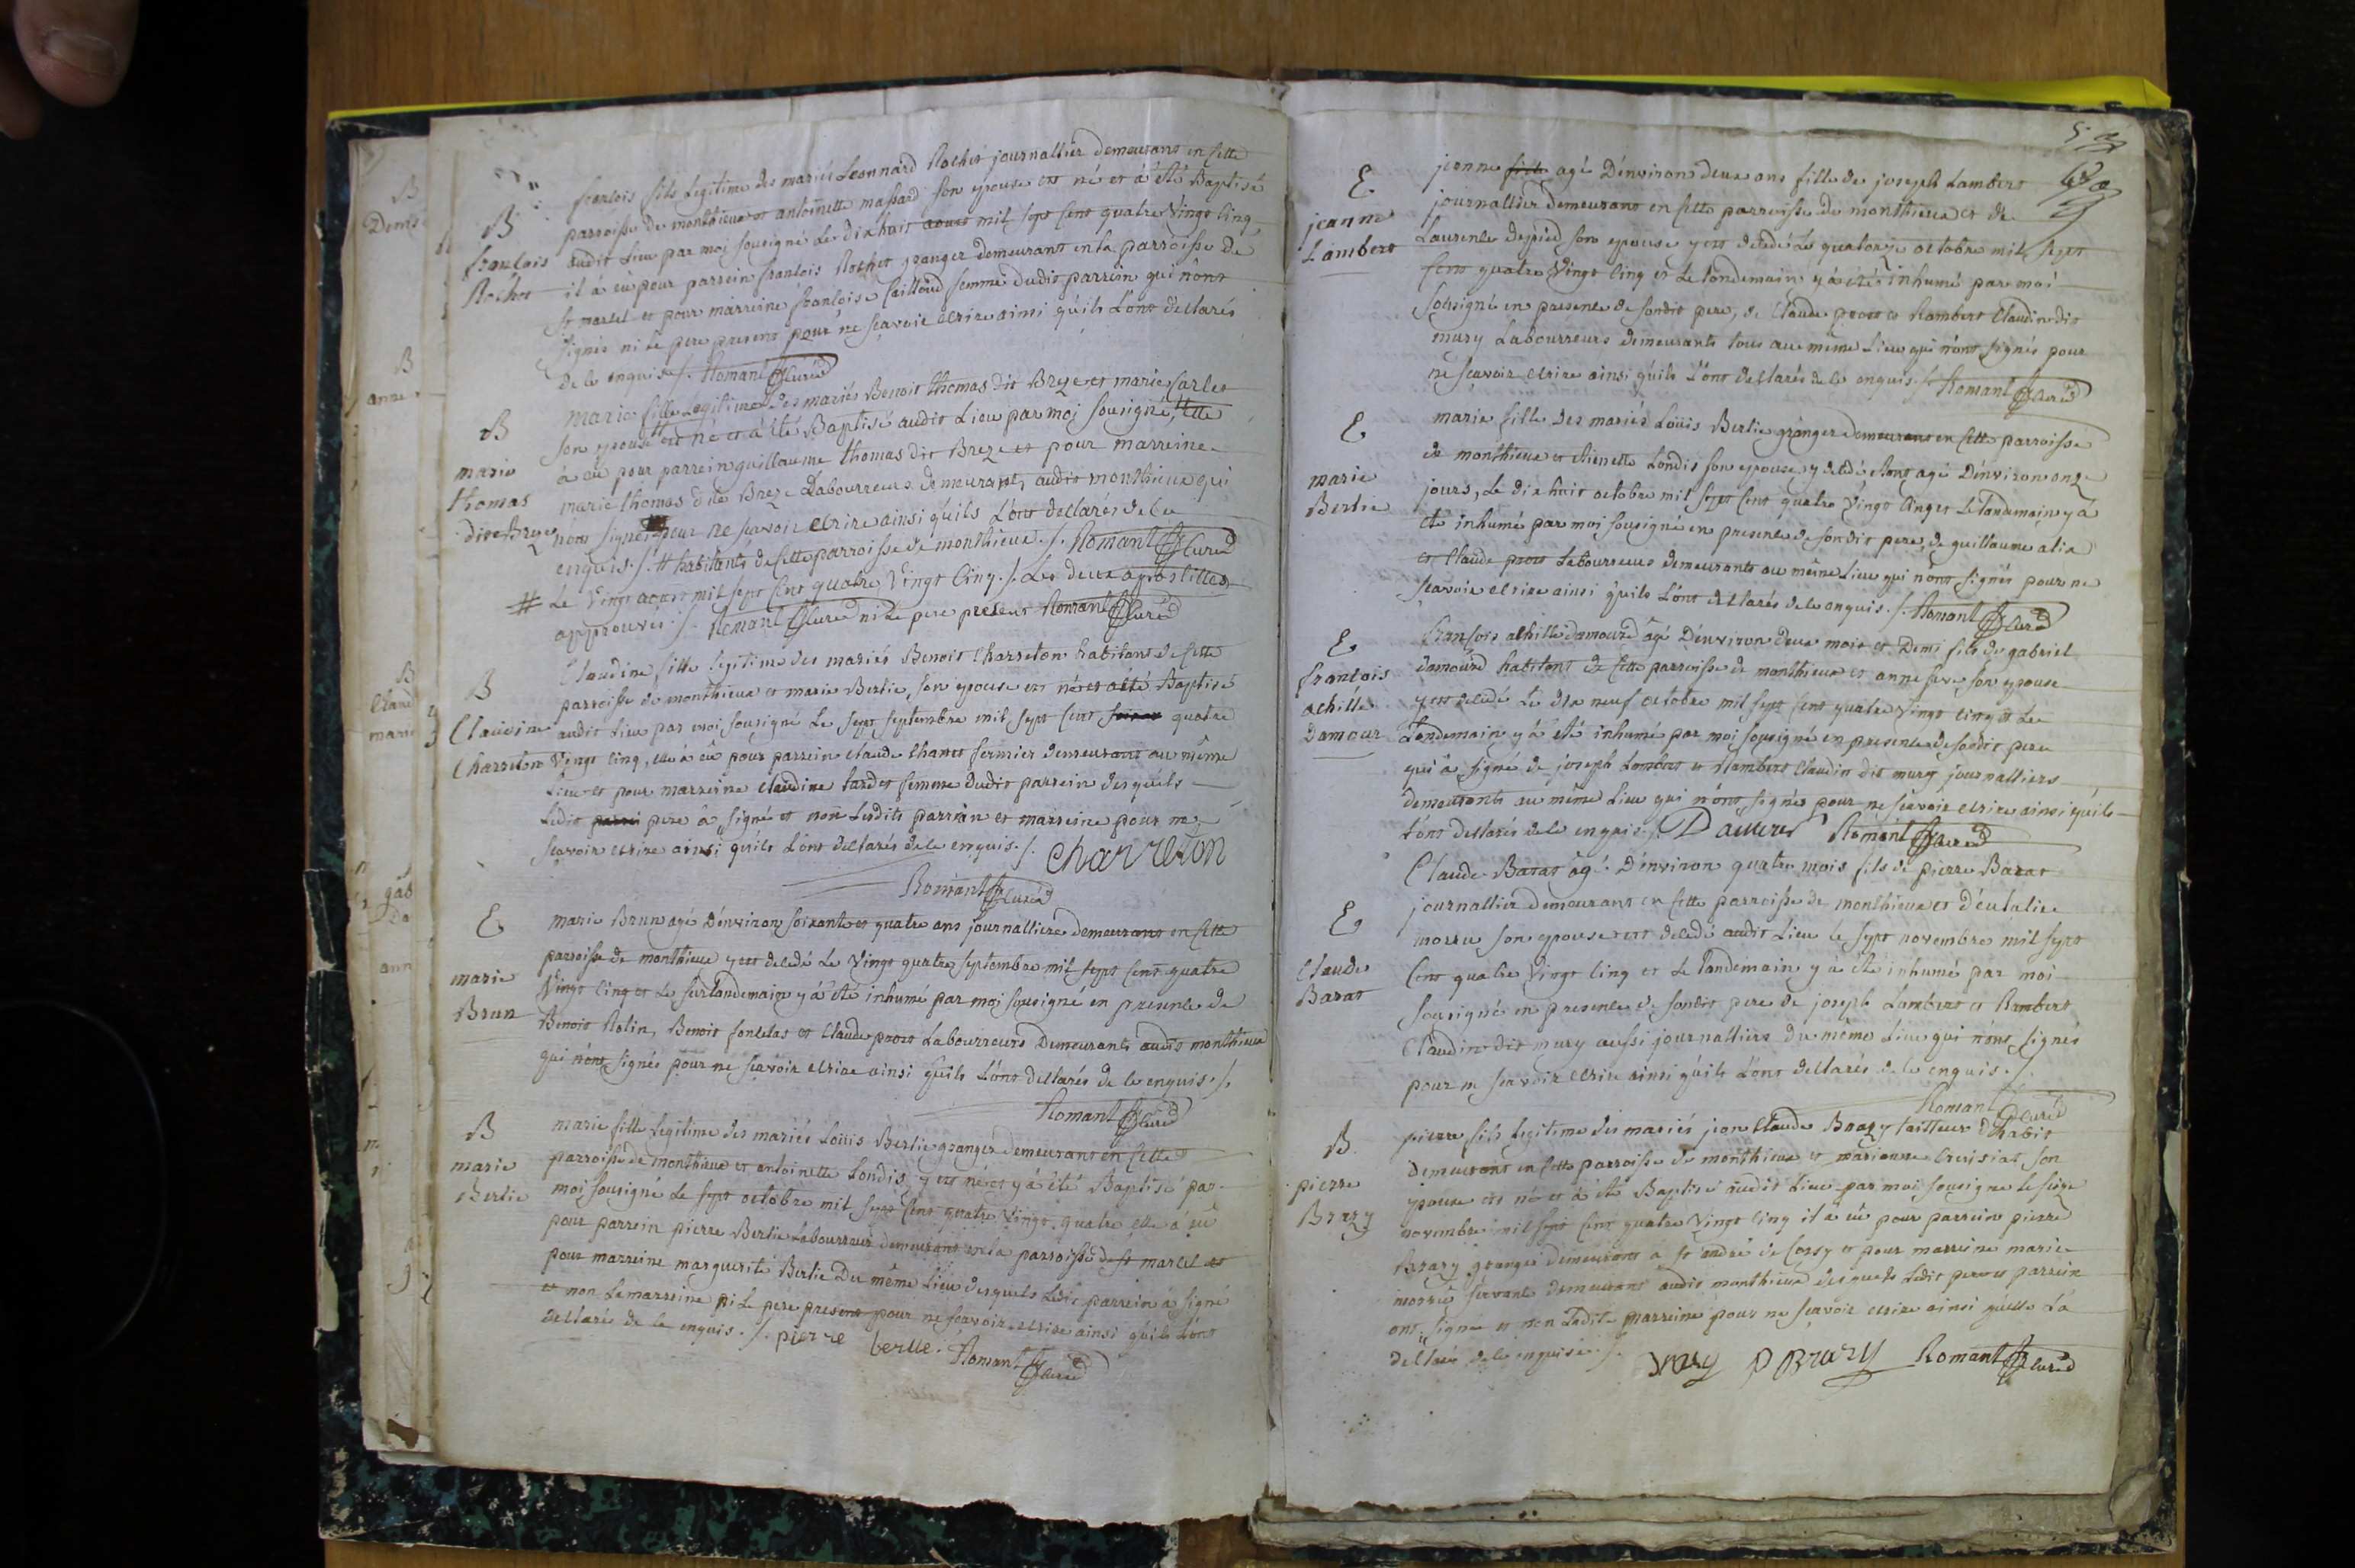 B
françois
Rochet
françois fils legitime des mariés Leonnard Rochet journallier demeurant en cette
parroisse de monthieux et antoinette massard son epouse est né et a été Baptisé
audit Lieu par moi sousigné Le dixhuit aoust mil sept cent quatre Vingt cinq
il a eu pour parrein françois Rochet granger demeurant en la parroisse de
st marcel et pour marreine françoise Cailloud femme dudit parrein qui n'ont
signés ni Le pere present pour ne sçavoir ecrire ainsi quils L'ont declarés
de ce enquis ./. Romant Curé
B
marie
thomas
dite Breze
marie fille Legitime des mariés Benoit thomas dit Breze et marie Carlet
son epouse # est né et a été Baptisé audit Lieu par moi sousigné, # elle
à eu pour parrein guillaume thomas dit Breze et pour marreine
marie thomas dite Breze Labourreurs demeurants audit monthieux qui
nont signés pour ne sçavoir ecrire ainsi quils L'ont declarés de ce
enquis ./. # habitants de cette parroisse de monthieux ./. Romant Curé
# Le Vingt aoust mil sept cent quatre Vingt cinq ./. Les deux apostilles
approuvés ./. Romant Curé ni Le pere present Romant Curé
B
Claudine
Charreton
Claudine fille legitime des mariés Benoit Charreton habitant de cette
parroisse de monthieux et marie Bertie, son epouse est né et a été Baptisé
audit Lieu par moi sousigné Le sept septembre mil sept cent quatre
Vingt cinq, elle à eu pour parrein claude Chanet fermier demeurant au même
Lieu et pour marreine claudine tardet femme dudit parrein desquels
Ledit pere a signé et non Lesdits parrain et marreine pour ne
sçavoir ecrire ainsi quils L'ont declarés de ce enquis ./. charreton
Romant Curé
E
marie
Brun
marie Brun agé D'environ soixante et quatre ans journalliere demeurant en cette
parroisse de monthieux y est decedé Le Vingt quatre septembre mil sept cent quatre
Vingt cinq et Le surlandemain y a été inhumé par moi sousigné en presence de
Benoit Rolin, Benoit fontelas et Claude proost Labourreurs Demeurants audit monthieux
qui n'ont signés pour ne sçavoir ecrire ainsi quils L'ont declarés de ce enquis ./.
Romant Curé
B
marie
Bertie
marie fille legitime des mariés Loüis Bertie granger demeurant en cette
parroisse de monthieux et antoinette Londis y est né et y à été Baptisé par
moi sousigné Le sept octobre mil sept cent quatre Vingt quatre elle a eû
pour parrein pierre Bertie Labourreur demeurant en la parroisse de st marcel et
pour marreine marguerite Bertie Du même Lieu desquels Ledit parrein à signé
et non La marreine ni Le pere present pour ne sçavoir ecrire ainsi quils L'ont
declarés de ce enquis ./. pierre bertie. Romant Curé
E
jeanne
Lambert
jeanne agé D'environ deux ans fille de joseph Lambert
journallier demeurant en cette parroisse de monthieux et de
Laurence depied son epouse y est decedé Le quatorze octobre mil sept
cent quatre Vingt cinq et Le landemain y à été inhumé par moi
sousigné en presence de sondit pere, de Claude proost et Rambert Claudin dit
mury Labourreurs demeurants tous au même Lieu qui n'ont signés pour
ne sçavoir ecrire ainsi quils L'ont declarés de ce enquis ./. Romant Curé
E
marie
Bertie
marie fille des mariés Loüis Bertie granger demeurant en cette parroisse
de monthieux et Londis son epouse y decedé etant agé D'environ onze
jours, Le dix huit octobre mil sept cent quatre Vingt cinq et Le landemain y à
été inhumé par moi sousigné en presence de sondit pere, de guillaume alix
et Claude proost Labourreurs demeurants au même Lieu qui n'ont signés pour ne
sçavoir ecrire ainsi quils L'ont declarés de ce enquis ./. Romant Curé
E
françois
achille
Damour
françois achille damourd âgé D'environ deux mois et Demi fils de gabriel
damourd habitant de cette parroisse de monthieux et anne son epouse
y est decedé Le dix neuf octobre mil sept cent quatre Vingt cinq et Le
Landemain y à été inhumé par moi sousigné en presence de sondit pere
qui à signé de joseph Lambert et Rambert Claudin dit mury journalliers
demeurants au même Lieu qui n'ont signés pour ne sçavoir ecrire ainsi quils
L'ont declarés de ce enquis ./. Damour Romant Curé
E
Claude
Barat
Claude Barat âgé D'environ quatre mois fils de pierre Barat
journallier demeurant en cette parroisse de monthieux et d'eulalie
morru son epouse est decedé audit Lieu le sept novembre mil sept
cent quatre Vingt cinq et Le landemain y a été inhumé par moi
sousigné en presence de sondit pere de joseph Lambert et Rambert
Claudin dit mury aussi journalliers du même Lieu qui n'ont signés
pour ne sçavoir ecrire ainsi quils L'ont declarés de ce enquis ./.
Romant Curé
B
pierre
Brazy
pierre fils legitime des mariés jean Claude Brazy tailleur d'habit
Demeurant en cette parroisse de monthieux et marianne son
epouse est né et à été Baptisé audit Lieu par moi sousigné le seize
novembre mil sept cent quatre Vingt cinq il a eû pour parrein pierre
Brazy granger demeurant a st andré de Corsy et pour marreine marie
morru servante demeurant audit monthieux desquels Ledit pere et parrein
ont signé et non Ladite marreine pour ne sçavoir ecrire ainsi quelle L'a
declaré de ce enquise ./. P Brazy Romant Curé